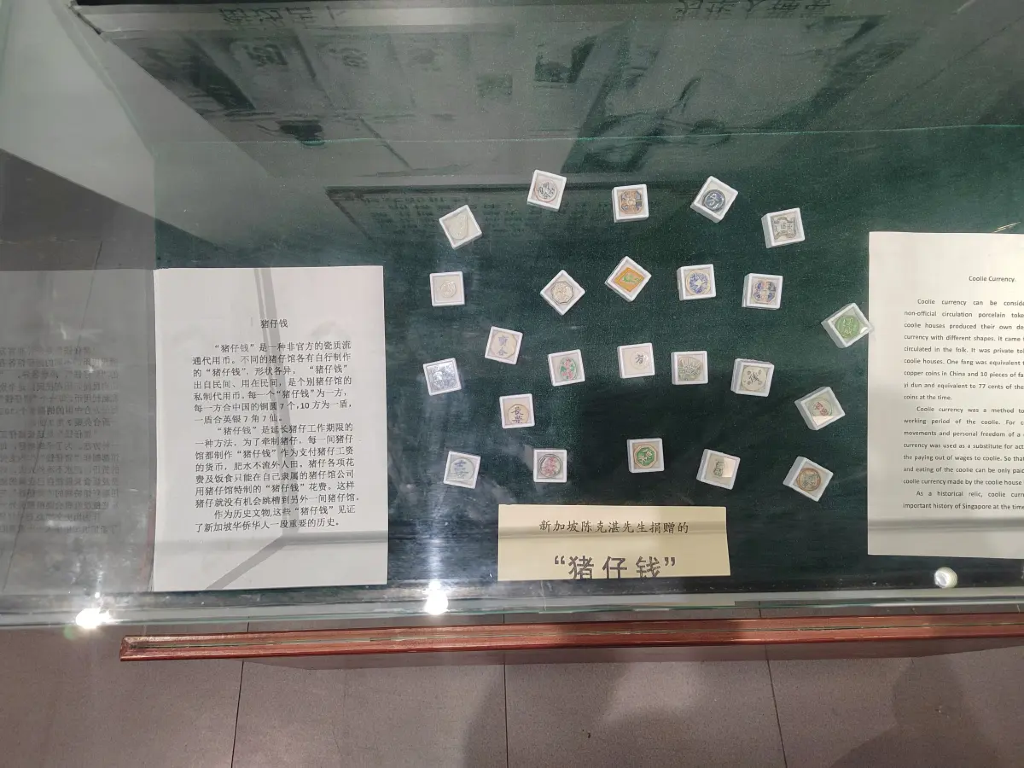 猪仔钱
“猪仔钱”是一种非官方的瓷质流
通代用币。不同的猪仔馆各有自行制作
的“猪仔钱”,形状各异。 “猪仔钱”
出自民间、用在民间,是个别猪仔馆的
私制代用币。每一个“猪仔钱”为一方,
每一方合中国的铜 7 个,10 方为一
一 合英银 7 角 7 仙。
“猪仔钱”是延长猪仔工作期限的
一种方法。为了牵制猪仔,每一间猪仔
馆都制作“猪仔钱”作为支付猪仔工资
的货币,肥水不流外人田,猪仔各项花
费及饭食只能在自己隶属的猪仔馆公司
用猪仔馆特制的“猪仔钱”花费。这样
猪仔就没有机会跳槽到另外一间猪仔馆。
作为历史文物,这些“猪仔钱”见证
了新加坡华侨华人一段重要的历史。
新加坡陈克湛先生捐赠的
“猪仔钱”
Coolie Currency
Coolie currency can be conside
non-official circulation porcelain toke
coolie houses produced their own de
currency with different shapes. It came f
circulated in the folk. It was private tok
coolie houses. One fang was equivalent t
copper coins in China and 10 pieces of fa
yi dun and equivalent to 77 cents of the
coins at the time.
Coolie currency was a method to
working period of the coolie. For c
movements and personal freedom of a
currency was used as a substitute for act
the paying out of wages to coolie. So that
and eating of the coolie can be only paid
coolie currency made by the coolie house
As a historical relic, coolie curre
important history of Singapore at the time